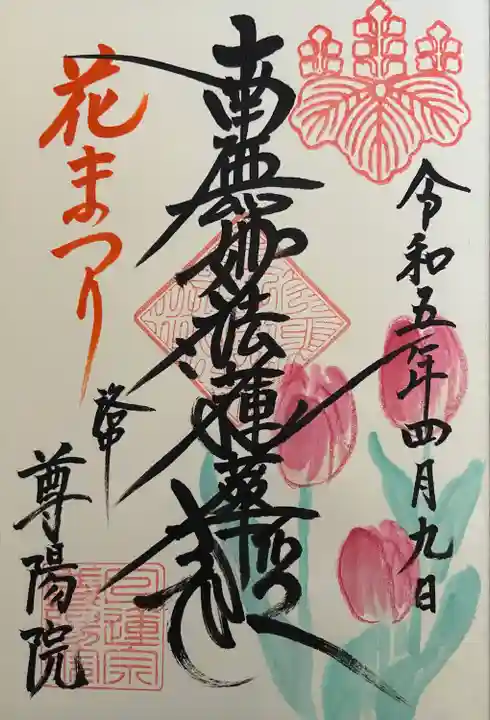 令和五年四月九日
南無妙法蓮華経
花まつり
尊陽院
日蓮宗